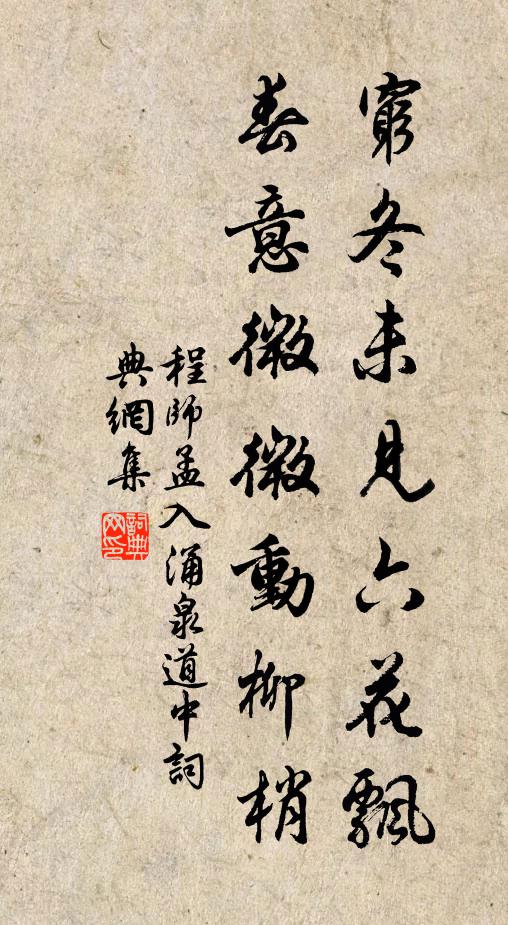 窮冬未見六花飄
春意微微動柳梢
程師孟入涌泉道中詞
典網集
詞典
网印